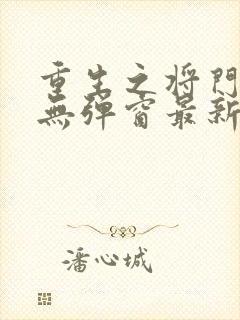 重生之将门
无弹窗最新
潘心城